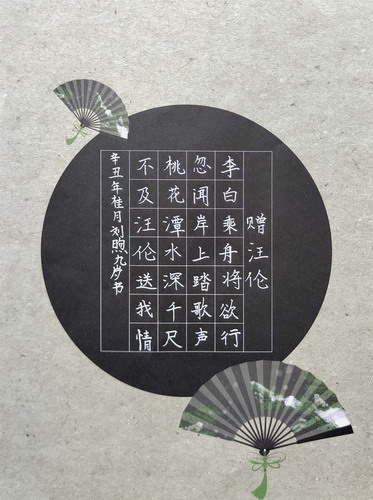 赠汪伦
李白乘舟将欲行
忽闻岸上踏歌声
桃花潭水深千尺
不及汪伦送我情
辛丑年桂月刘煦九岁书